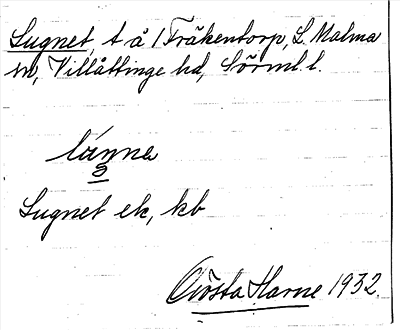 Lugnet, t å 1 Fräkentorp, L. Malma
sn, Villåttinge hd, Sörml. l.
lúŋne
Lugnet ek, kb
Gösta Harne 1932.